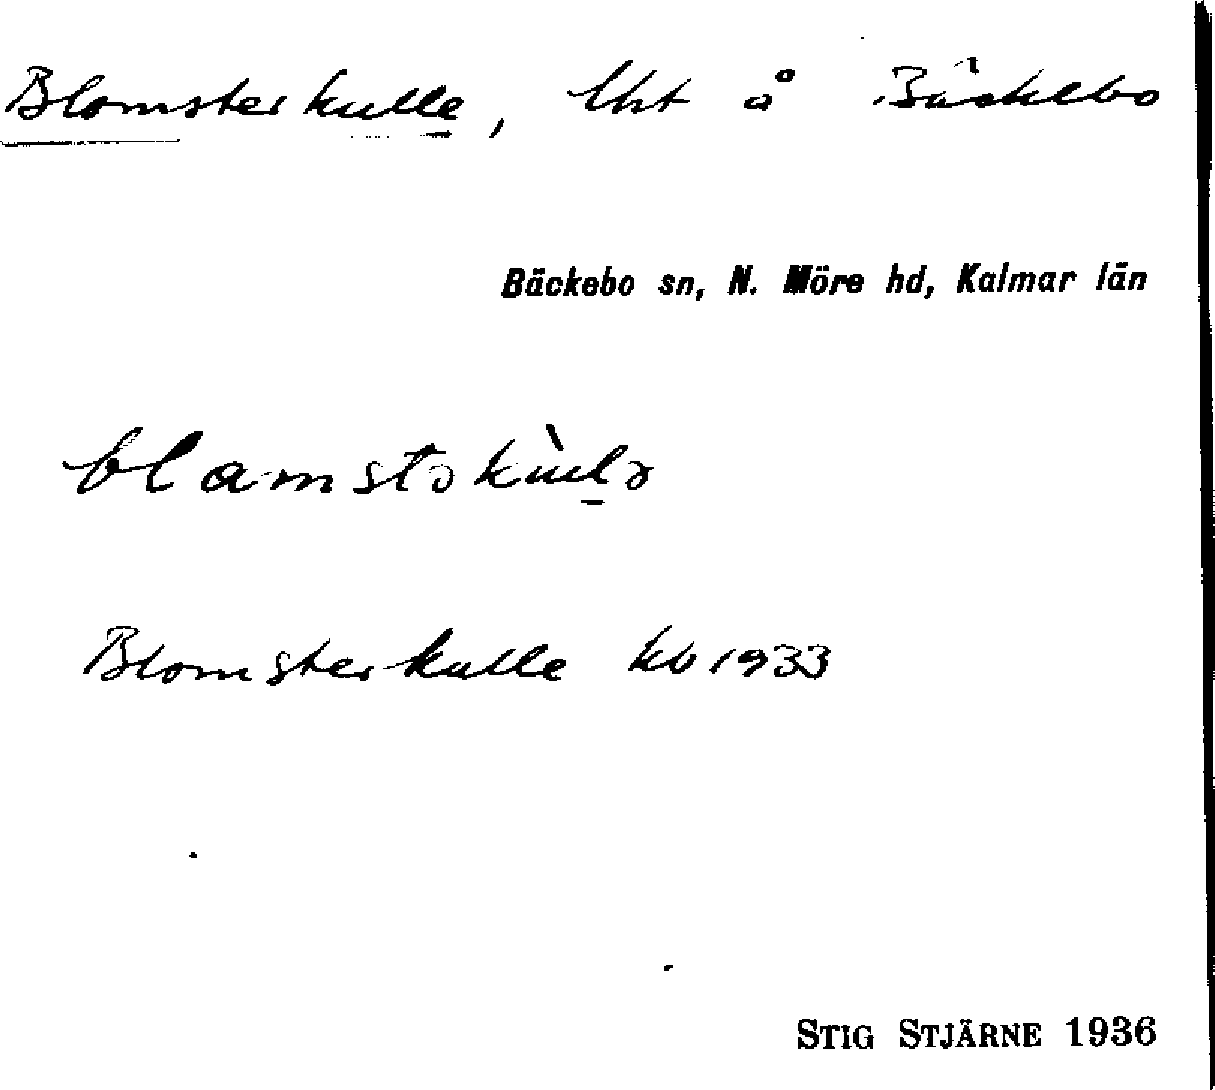 Blomsterkulle, lht å Bäckebo
Bäckebo sn, N. Möre hd, Kalmar län
blamstəkùlə
Blomsterkulle kb 1933
STIG STJÄRNE 1936